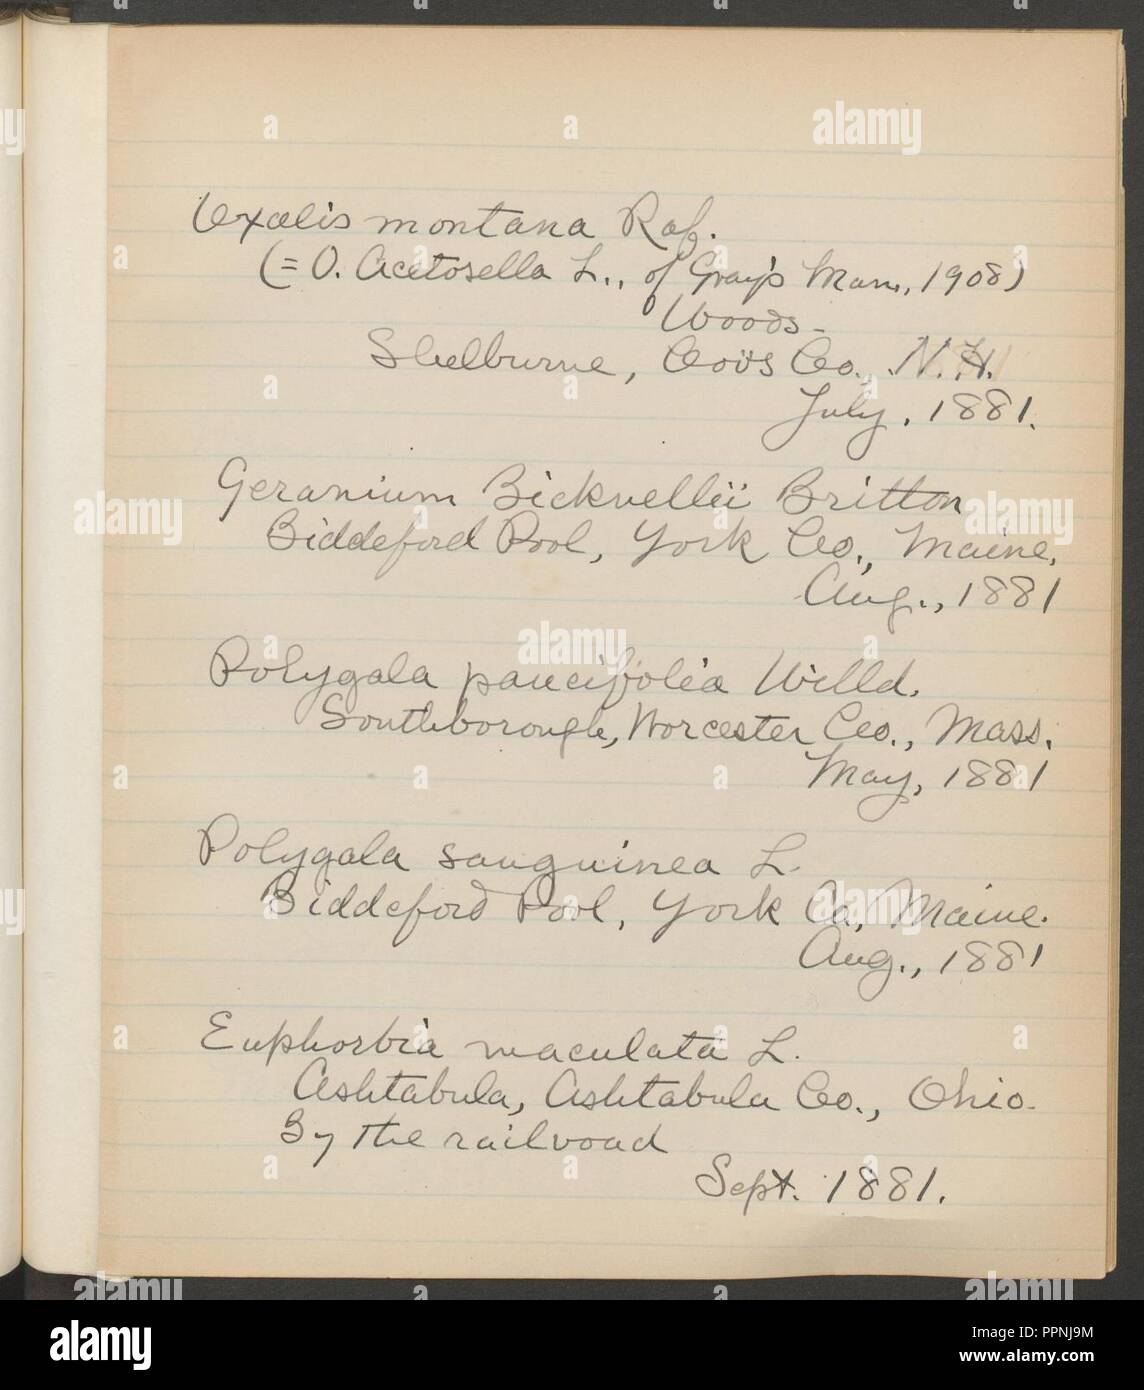 Oxalis montana Raf.
(= O. Acetosella L., of Gray's Man., 1908)
Woods-
Shelburne, Coös Co., N.H.
July, 1881.
Geranium Bicknellii Britton
Biddeford Pool, York Co., Maine.
Aug., 1881
Polygala paucifolia Willd.
Southborough, Worcester Co., Mass.
May, 1881
Polygala sanguinea L.
Biddeford Pool, York Co., Maine.
Aug., 1881
Euphorbia maculata L.
Ashtabula, Ashtabula Co., Ohio.
By the railroad
Sept. 1881.
alamy
Image ID: PPNJ9M
www.alamy.com